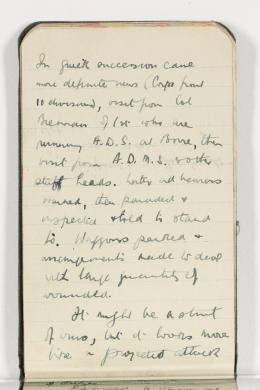 In quick succession came
more definite news (Corps front
10 divisions), visit from Col
Newman of 1st who are
running A.D.S. at Bovre, then
visit from A.D.M.S. & other
staff heads. Lorries and bearers
warned, then paraded &
inspected & told to stand
to. Waggons packed &
arrangements made to deal
with large quantity of
wounded.
It might be a stunt
of ours, but it looks more
like a projected attack